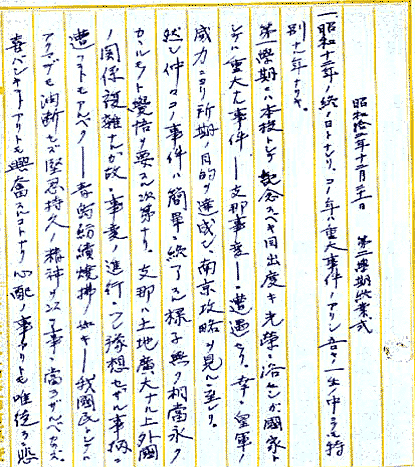 昭和拾二年十二月三十一日　第二學期終業式
一、昭和十二年ノ終ノ日トナレリ、コノ年ハ重大事件ノアリシ吾々一生中ニテモ特
別ナ年ナリキ。
第一學期ニハ本校トシテ記念スベキ目出度キ光榮ニ浴セシガ國家ト
シテハ重大ナル事件――支那事変――ニ遭遇セリ、幸ニ皇軍ノ
威力ニヨリ所期ノ目的ヲ達成シ、南京攻略ヲ見ルニ至レリ。
然シ仲々コノ事件ハ簡単ニ終了スル様子無ク相當永ク
カカルモノト覺悟ヲ要スル次第ナリ。支那ハ土地廣大ナル上外國
ノ関係複雑ナルガ故ニ事変ノ進行ニツレ豫想セザル事柄ニ
遭フコトモアルベク――青島紡績焼拂ノ如キ――我國民トシテハ
アクマデモ油断セズ堅忍持久ノ精神ヲ以テ事ニ當ラザルベカラズ。
喜ベキコトアリトモ興奮スルコトナク心配ノ事アリトモ唯徒ラニ悲